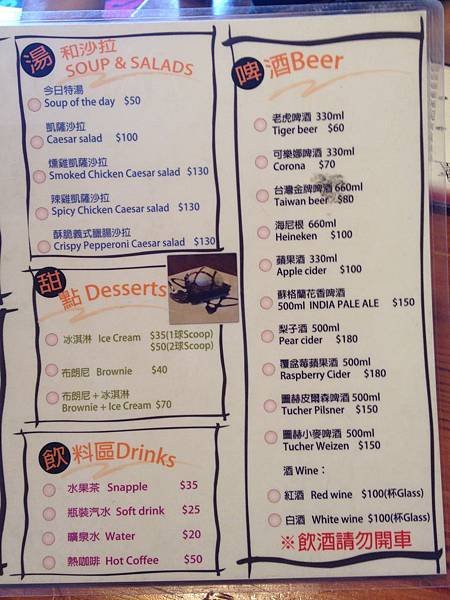 湯 和沙拉
SOUP & SALADS
今日特湯
Soup of the day $50
凱薩沙拉
Caesar salad $100
燻雞凱薩沙拉
Smoked Chicken Caesar salad $130
辣雞凱薩沙拉
Spicy Chicken Caesar salad $130
酥脆義式臘腸沙拉
Crispy Pepperoni Caesar salad $130
甜點 Desserts
冰淇淋 Ice Cream $35(1球Scoop)
$50(2球Scoop)
布朗尼 Brownie $40
布朗尼+冰淇淋
Brownie + Ice Cream $70
飲料區Drinks
水果茶 Snapple $35
瓶裝汽水 Soft drink $25
礦泉水 Water $20
熱咖啡 Hot Coffee $50
啤酒Beer
老虎啤酒 330ml
Tiger beer $60
可樂娜啤酒 330ml
Corona $70
台灣金牌啤酒 660ml
Taiwan beer $80
海尼根 660ml
Heineken $100
蘋果酒 330ml
Apple cider $100
蘇格蘭花香啤酒
500ml INDIA PALE ALE $150
梨子酒 500ml
Pear cider $180
覆盆莓蘋果酒 500ml
Raspberry Cider $180
圖赫皮爾森啤酒 500ml
Tucher Pilsner $150
圖赫小麥啤酒 500ml
Tucher Weizen $150
酒 Wine：
紅酒 Red wine $100(杯Glass)
白酒 White wine $100(杯Glass)
※飲酒請勿開車